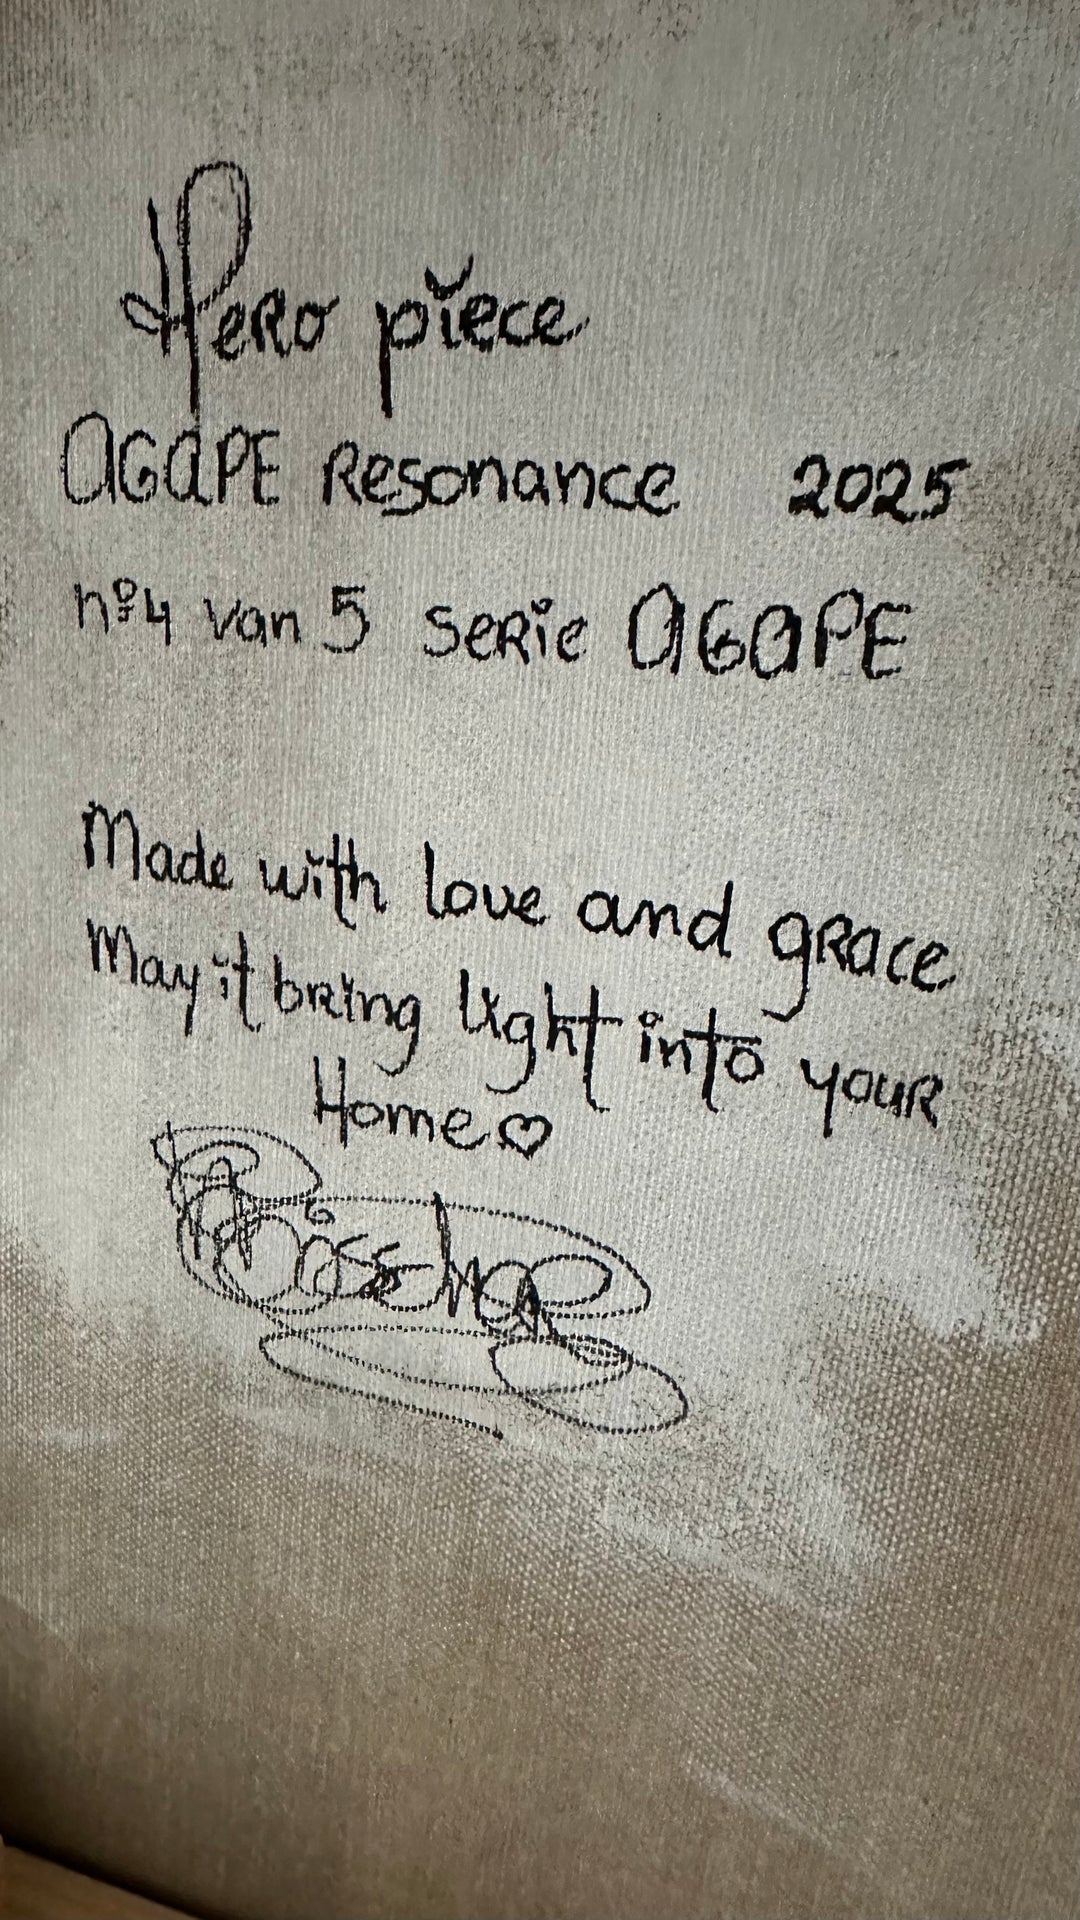 Hero piece
AGAPE Resonance 2025
nº4 van 5 serie AGAPE
Made with love and grace
May it bring light into your
Home♡